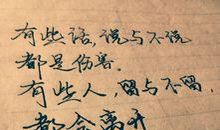 有些话，说与不说
都是伤害.
有些人，留与不留，
都会离开